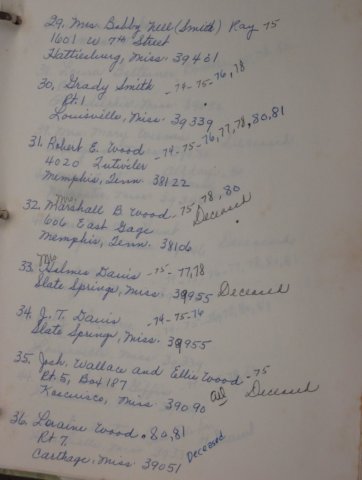 29. Mrs. Bobby Nell (Smith) Ray - 75
1601 W 7th Street
Hattiesburg, Miss. 39401
30. Grady Smith - 74-75-76, 78
Rt. 1
Louisville, Miss. 39339
31. Robert E. Wood - 74-75-76, 77, 78, 80, 81
4020 Tutwiler
Memphis, Tenn. 38122
32. Marshall B. Wood - 75, 78, 80
606 East Gage Deceased
Memphis, Tenn. 38106
33. Davis - 75 - 77, 78
Slate Springs, Miss 38955 Deceased
34. J. T. Davis - 74-75-76
Slate Springs, Miss. 38955
35. Josh, Wallace and Ellie Wood - 75
Rt. 5, Box 187 all Deceased
Kosciusco, Miss. 39090
36. Loraine Wood - 80, 81
Rt 7. Deceased
Carthage, Miss 39051